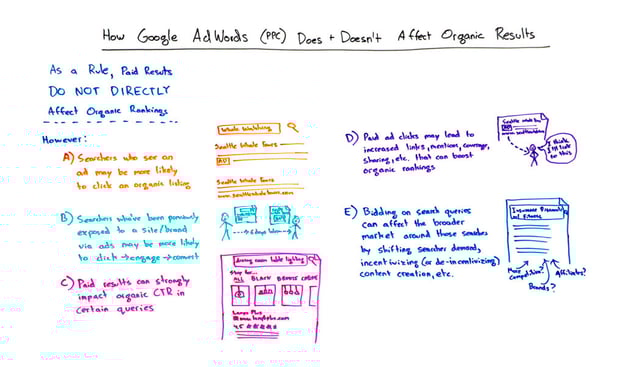 How Google AdWords (PPC) Does + Doesn't Affect Organic Results
As a Rule, Paid Results
DO NOT DIRECTLY
Affect Organic Rankings
However:
A) Searchers who see an
ad may be more likely
to click an organic listing
Whale Watching
Seattle Whale Tours
AD
Seattle Whale Tours
www.seattlewhaletours.com
B) Searchers who've been previously
exposed to a site/brand
via ads may be more likely
to click→engage→convert
6 days later
C) Paid results can strongly
impact organic CTR in
certain queries
dining room table lighting
Shop for...
ALL BLACK BRONZE
Lamps Plus
www.lampsplus.com
D) Paid ad clicks may lead to
increased links, mentions, coverage,
sharing, etc. that can boost
organic rankings
AD
I think
I'll link
for this
E) Bidding on search queries
can affect the broader
market around those searches
by shifting searcher demand,
incentivizing (or de-incentivizing)
content creation, etc.
More
Competition?
Brands?
Affiliates?